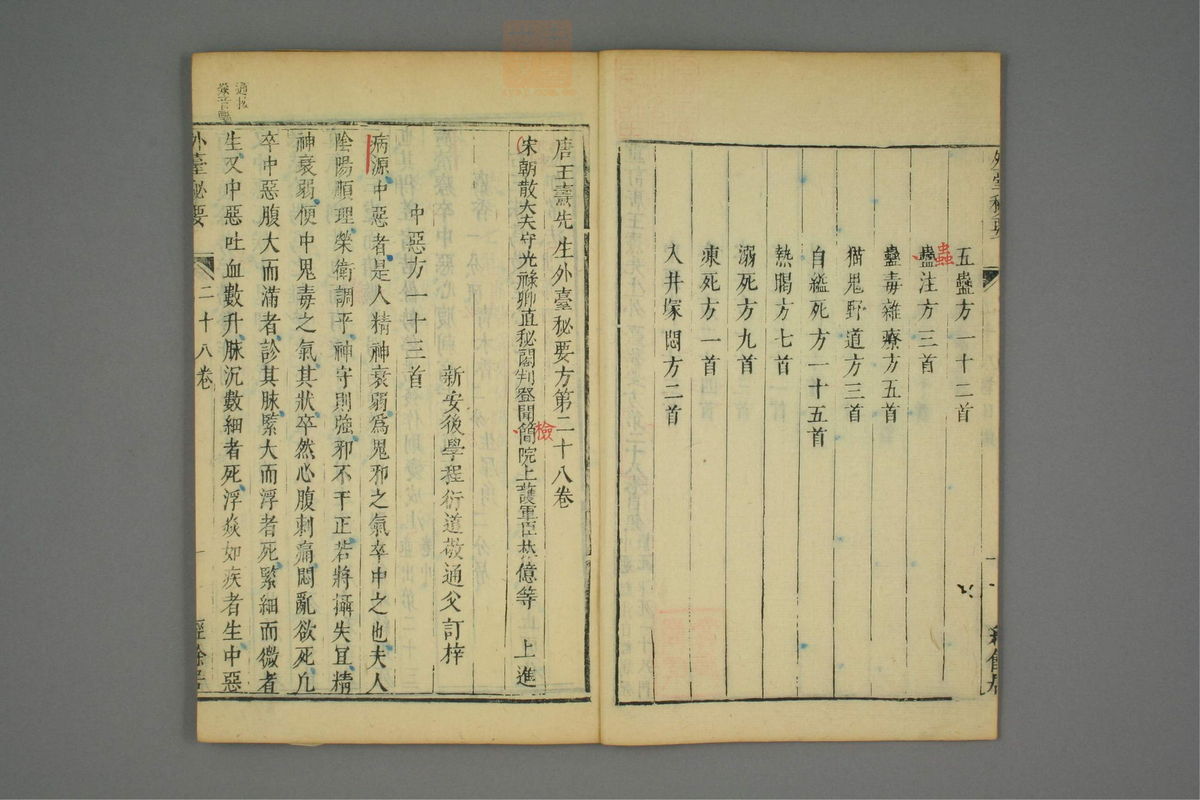 五蠱方一十二首
蠱注方三首
蟲
蠱毒雜療方五首
猫鬼野道方三首
自縊死方一十五首
熱暍方七首
溺死方九首
凍死方一首
入井塚悶方二首
唐王燾先生外臺秘要方第二十八卷
宋朝散大夫守光祿卿直秘閣判登聞簡院上護軍臣林億等 上進
檢
新安後學程衍道敬通父訂梓
中惡方一十三首
病源中惡者是人精神衰弱爲鬼邪之氣卒中之也夫人
陰陽順理榮衛調平神守則強邪不干正若將攝失宜精
神衰弱便中鬼毒之氣其狀卒然心腹刺痛悶亂欲死凡
卒中惡腹大而滿者診其脉緊大而浮者死緊細而微者
生又中惡吐血數升脉沉數細者死浮焱如疾者生中惡
外臺秘要 二十八卷 一 經餘居